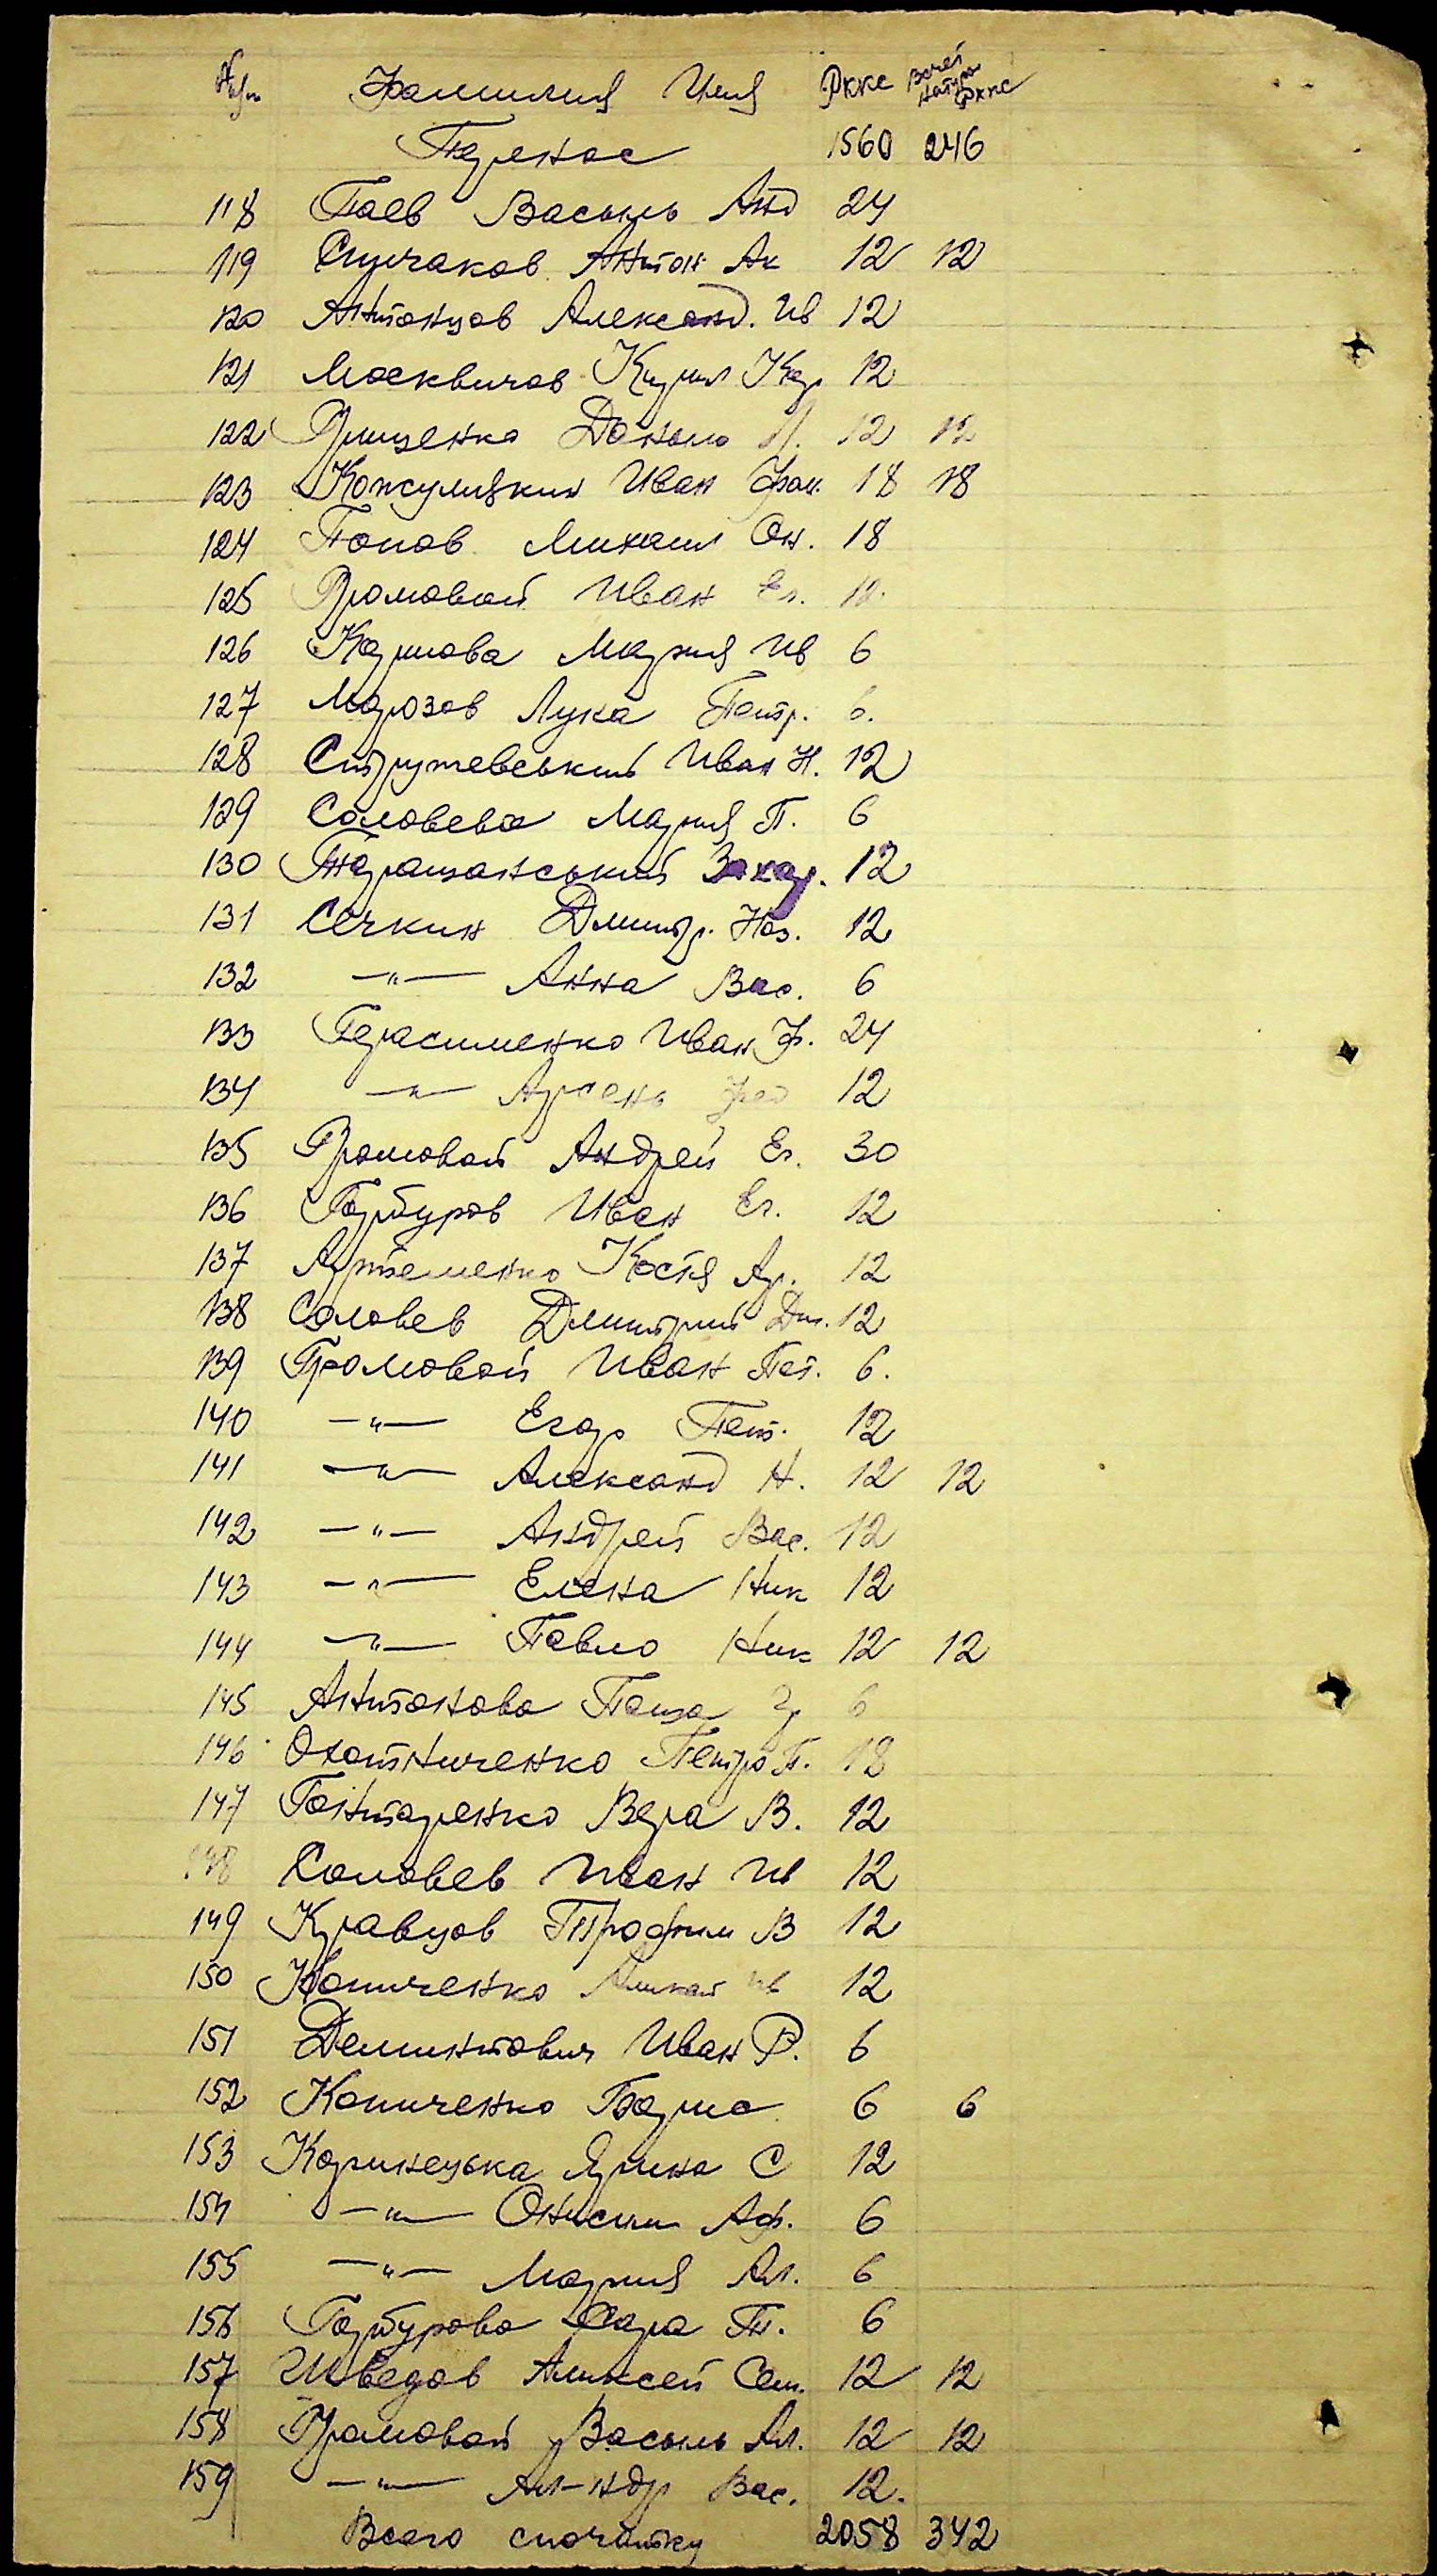 № п/п Фамилия Имя Рккс Всчет натур Рккс
Перенос 1560 246
118 Гаев Василь Анд 24
119 Спичаков Антон Ак 12 12
120 Антонцов Александ. Ив 12
121 Москвичов Кирил Кар 12
122 Грищенко Данило 12 12
123 Кожулицкин Иван Фом. 18 18
124 Попов Михаил Он. 18
125 Громовой Иван Ег. 12.
126 Карпова Мария Ив 6
127 Марозов Лука Петр. 6.
128 Стружевський Иван Н. 12
129 Соловева Мария П. 6
130 Таращанський Захар. 12
131 Сечкин Дмитр. Наз. 12
132 —"— Анна Вас. 6
133 Герасименко Иван Ф. 24
134 —"— Арсень Фед 12
135 Громовой Андрей Ег. 30
136 Гарбуров Иван Ег. 12
137 Артеменко Костя Ар. 12
138 Соловев Дмитрий Дм. 12
139 Громовой Иван Пет. 6.
140 —"— Егор Пет. 12
141 —"— Александ Н. 12 12
142 —"— Андрей Вас. 12
143 —"— Елена Ник 12
144 —"— Павло Ник 12 12
145 Антонова Паша Гр 6
146 Охотниченко Петро П. 18
147 Гонтаренко Вера В. 12
148 Соловев Иван Ив 12
149 Кравцов Трофим В 12
150 Кониченко Ив 12
151 Деминтович Иван Р. 6
152 Кониченко 6 6
153 Каринецька Ярина С 12
154 —"— Онисим Аф. 6
155 —"— Мария Ал. 6
156 Гарбурова Сара Тн. 6
157 Шведов Аликсей Сем. 12 12
158 Громовой Василь Ал. 12 12
159 —"— Ал-ндр Вас. 12.
Всего спочатку 2058 342